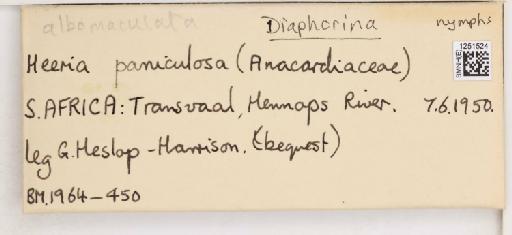 albomaculata Diaphorina nymphs
1251524
Heeria paniculosa (Anacardiaceae)
S. AFRICA: Transvaal, Hennops River. 7.6.1950.
leg G. Heslop-Harrison. (bequest)
BM.1964-450